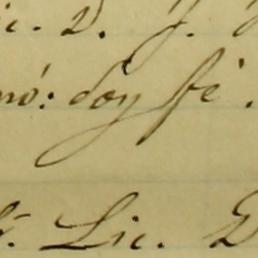 ic. D. J.
mó: doy fé.
Lic. D